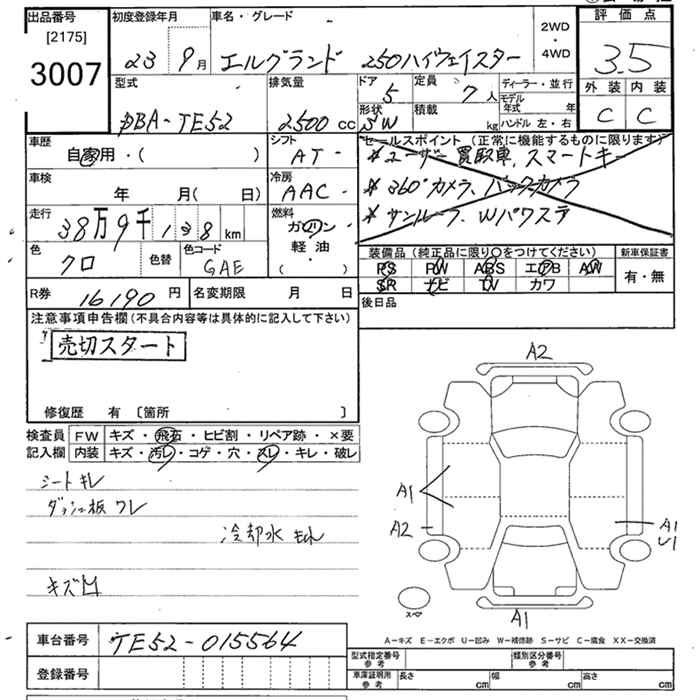 出品番号 初度登録年月 車名・グレード 2WD・4WD 評価点
[2175]
3007 23 9月 エルグランド 250ハイウェイスター 3.5
型式 排気量 ドア 5 定員 7人 ディーラー・並行 外装 内装
DBA-TE52 2500cc 形状 5W 積載 kg モデル年式 年 C C
ハンドル 左・右
車歴 シフト セールスポイント(正常に機能するものに限ります)
自家用・( ) AT- *ユーザー買取車、スマートキー
車検 冷房 *360°カメラ、バックカメラ
年 月( 日) AAC- *サンルーフ、Wパワステ
走行 燃料
38万9千138km ガソリン
軽油・
( )
色 色替 色コード 装備品(純正品に限り○をつけてください) 新車保証書
クロ GAE PS PW ABS エアB AW 有・無
SR ナビ TV カワ
R券 16190円 名変期限 月 日 後日品
注意事項申告欄(不具合内容等は具体的に記入して下さい)
売切スタート
修復歴 有 〔箇所 〕
検査員 FW キズ・飛石・ヒビ割・リペア跡・×要
記入欄 内装 キズ・汚レ・コゲ・穴・スレ・キレ・破レ
シートキレ
ダッシュ板ワレ
冷却水モレ
キズ凹
A2
A1
A2
A1
U1
スペア
A1
A-キズ E-エクボ U-凹み W-補修跡 S-サビ C-腐食 XX-交換済
車台番号 TE52-015564
登録番号
型式指定番号 参考 類別区分番号 参考
車庫証明用 参考 長さ cm 幅 cm 高さ cm